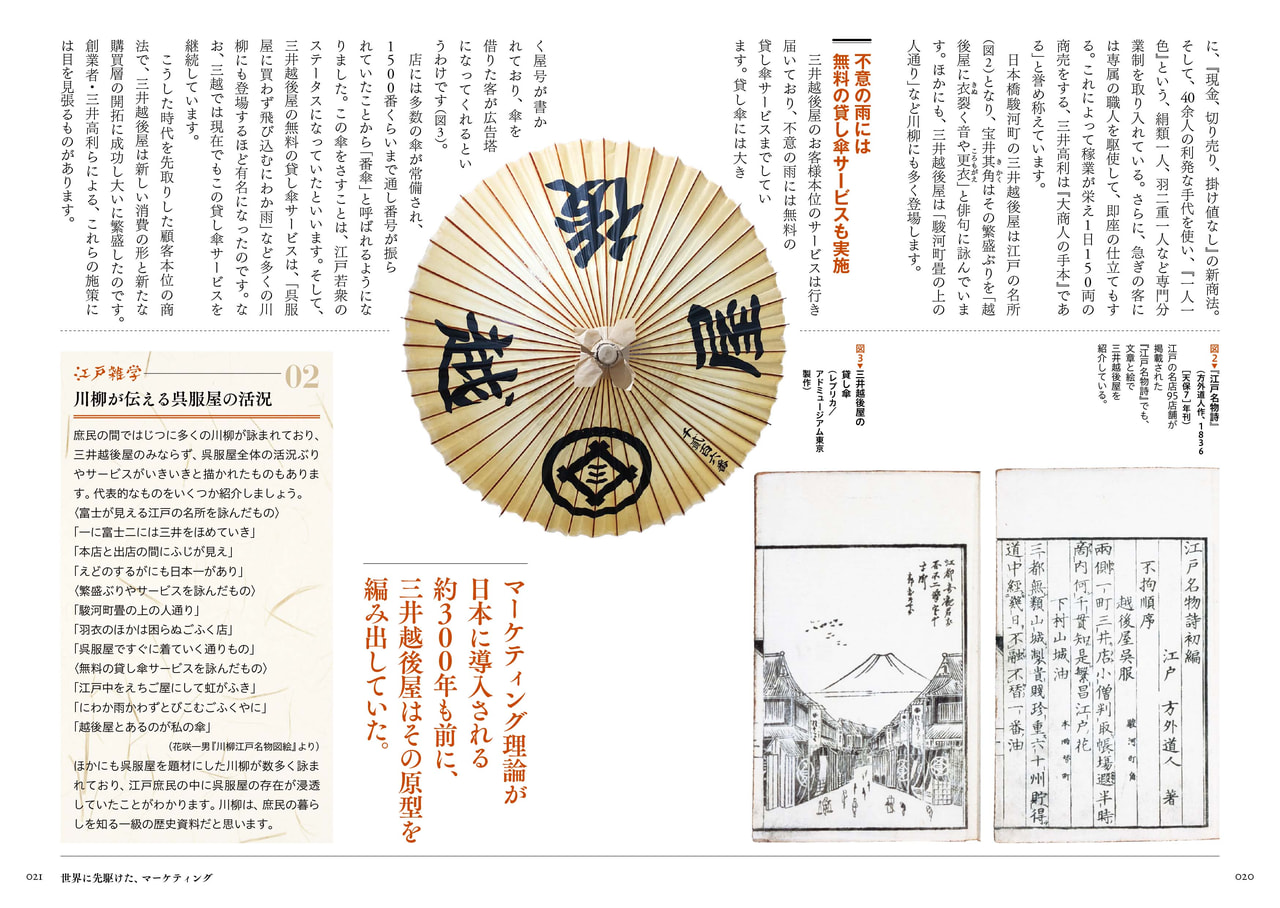 に、『現金、切り売り、掛け値なし』の新商法。
そして、40余人の利発な手代を使い、『一人一
色』という、絹類一人、羽二重一人など専門分
業制を取り入れている。さらに、急ぎの客に
は専属の職人を駆使して、即座の仕立てもす
る。これによって稼業が栄え1日150両の
商売をする、三井高利は『大商人の手本』であ
る」と誉め称えています。
日本橋駿河町の三井越後屋は江戸の名所
（図2）となり、宝井其角はその繁盛ぶりを「越
後屋に衣裂く音や更衣」と俳句に詠んでいま
す。ほかにも、三井越後屋は「駿河町畳の上の
人通り」など川柳にも多く登場します。
不意の雨には
無料の貸し傘サービスも実施
三井越後屋のお客様本位のサービスは行き
届いており、不意の雨には無料の
貸し傘サービスまでしてい
ます。貸し傘には大き
く屋号が書か
れており、傘を
借りた客が広告塔
になってくれるとい
うわけです（図3）。
店には多数の傘が常備され、
1500番くらいまで通し番号が振ら
れていたことから「番傘」と呼ばれるようにな
りました。この傘をさすことは、江戸若衆の
ステータスになっていたといいます。そして、
三井越後屋の無料の貸し傘サービスは、「呉服
屋に買わず飛び込むにわか雨」など多くの川
柳にも登場するほど有名になったのです。な
お、三越では現在でもこの貸し傘サービスを
継続しています。
こうした時代を先取りした顧客本位の商
法で、三井越後屋は新しい消費の形と新たな
購買層の開拓に成功し大いに繁盛したのです。
創業者・三井高利らによる、これらの施策に
は目を見張るものがあります。
図2▼『江戸名物詩』
（方外道人作、1836
［天保7］年刊）
江戸の名店95店舗が
掲載された
『江戸名物詩』でも、
文章と絵で
三井越後屋を
紹介している。
図3▼三井越後屋の
貸し傘
（レプリカ／
アドミュージアム東京
製作）
越
後
屋
千弐百六番
江戸名物詩初編
江戸 方外道人 著
不拘順序
越後屋呉服 駿河町角
兩側一町三井店小僧判取帳場遐半時
商内何千貫知是繁昌江戸花
下村山城油 本両替町
三都無類山城製貴賤珍重六十州貯得
道中經幾日不融不替一番油
マーケティング理論が
日本に導入される
約300年も前に、
三井越後屋はその原型を
編み出していた。
江戸雑学 02
川柳が伝える呉服屋の活況
庶民の間ではじつに多くの川柳が詠まれており、
三井越後屋のみならず、呉服屋全体の活況ぶり
やサービスがいきいきと描かれたものもありま
す。代表的なものをいくつか紹介しましょう。
〈富士が見える江戸の名所を詠んだもの〉
「一に富士二には三井をほめていき」
「本店と出店の間にふじが見え」
「えどのするがにも日本一があり」
〈繁盛ぶりやサービスを詠んだもの〉
「駿河町畳の上の人通り」
「羽衣のほかは困らぬごふく店」
「呉服屋ですぐに着ていく通りもの」
〈無料の貸し傘サービスを詠んだもの〉
「江戸中をえちご屋にして虹がふき」
「にわか雨かわずとびこむごふくやに」
「越後屋とあるのが私の傘」
（花咲一男『川柳江戸名物図絵』より）
ほかにも呉服屋を題材にした川柳が数多く詠ま
れており、江戸庶民の中に呉服屋の存在が浸透
していたことがわかります。川柳は、庶民の暮ら
しを知る一級の歴史資料だと思います。
021 世界に先駆けた、マーケティング
020